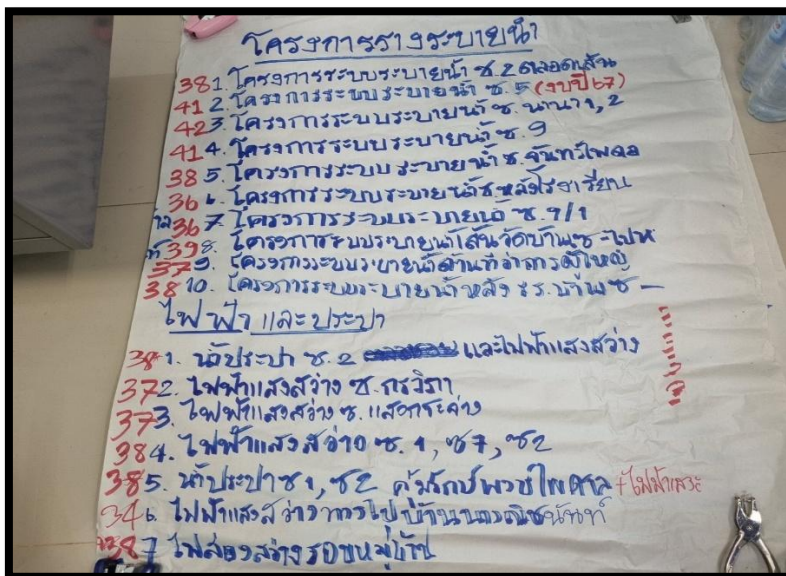 โครงการรางระบายน้ำ
38 1. โครงการระบบระบายน้ำ ซ.2 ตลอดเส้น
41 2. โครงการระบบระบายน้ำ ซ.5 (งบปี 67)
42 3. โครงการระบบระบายน้ำ ซ.นานา 1, 2
41 4. โครงการระบบระบายน้ำ ซ.9
38 5. โครงการระบบระบายน้ำ ซ.จันทร์ไพดล
36 6. โครงการระบบระบายน้ำ ซ.หลังโรงเรียน
36 7. โครงการระบบระบายน้ำ ซ.9/1
39 8. โครงการระบบระบายน้ำเส้นวัดบ้าน
37 9. โครงการระบบระบายน้ำด้านที่ว่าการ
38 10. โครงการระบบระบายน้ำหลัง รร.
ไฟฟ้า และประปา
38 1. น้ำประปา ซ.2 และไฟฟ้าแสงสว่าง
37 2. ไฟฟ้าแสงสว่าง ซ.กรวิภา
37 3. ไฟฟ้าแสงสว่าง ซ.
38 4. ไฟฟ้าแสงสว่าง ซ.1, ซ7, ซ2
38 5. น้ำประปา ซ1, ซ2 คุ้มรักษ์พงษ์ไพศาล +ไฟฟ้าแสง
34 6. ไฟฟ้าแสงสว่างทางไป
38 7 ไฟส่องสว่างรอบหมู่บ้าน